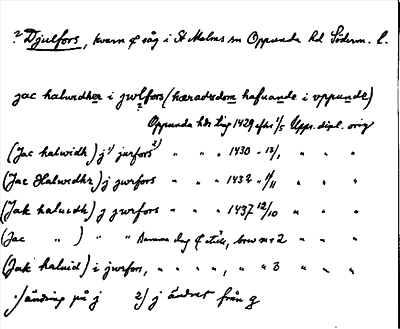 ? Djulfors, kvarn & såg i St Malms sn Oppunda hd Söderm. l.
jac halwidher i jwlfors (hæradzdom hafuande i vppunde)
Oppunda hds ting 1429 efter 1/5 Upps. dipl. orig
(Jac halwidh) j 1) jurfors 2) " " " 1430 - 13/1 " " "
(Jac Halwidhz) j jwrfors " " " 1434 - 11/11 " " "
(Jak haluidh) j jwrfors " " " 1437 12/10 " " "
(Jac " ) " " Samma dag & ställe, brev nr 2 " " "
(Jak haluid) i jwrfors, " " " " , " " 3 " " "
1) ändring på j 2) j ändrat från g